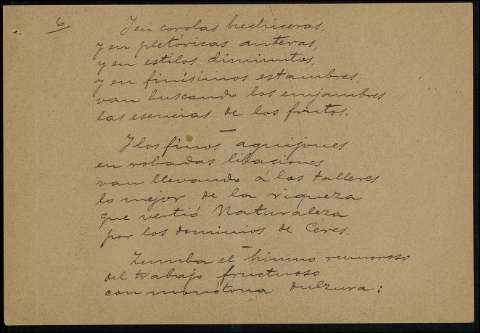 6
Y en corolas hechiceras,
y en pletóricas anteras,
y en estilos diminutos,
y en finísimos estambres,
van buscando los enjambres
las esencias de los frutos.
—
Y los finos aguijones
en robadas libaciones
van llevando á los talleres
lo mejor de la riqueza
que vertió Naturaleza
por los dominios de Ceres.
—
Zumba el himno rumoroso
del trabajo fructuoso
con monótona dulzura;